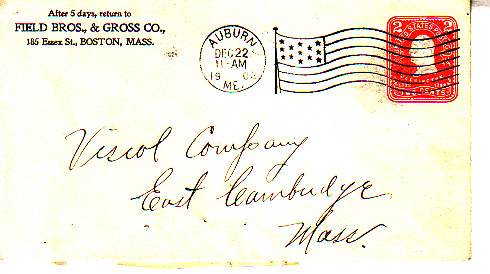 After 5 days, return to
FIELD BROS., & GROSS CO.,
185 Essex St., BOSTON, MASS.
AUBURN
DEC 22
11-AM
19
ME.
2 UNITED STATES POSTAGE 2
WASHINGTON
TWO CENTS
Viscol Company
East Cambridge
Mass.